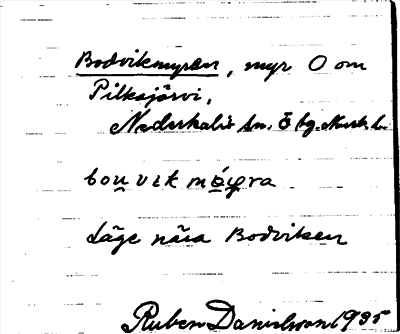 Bodvikmyran, myr O om
Pilksjärvi,
Nederkalix sn. Ö bg. Norrb. l.
bouvik
Läge nära Bodviken
Ruben Danielsson 1935